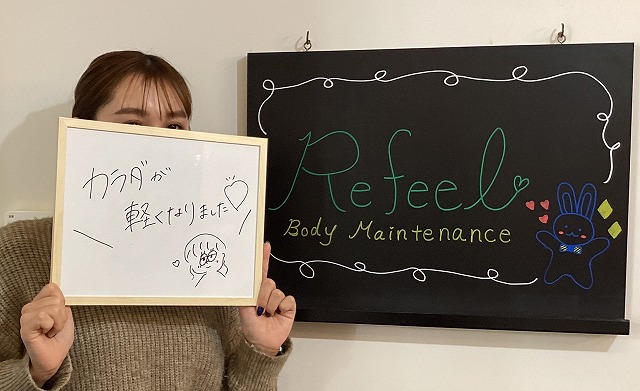 カラダが
軽くなりました♡
Refeel♡
Body Maintenance